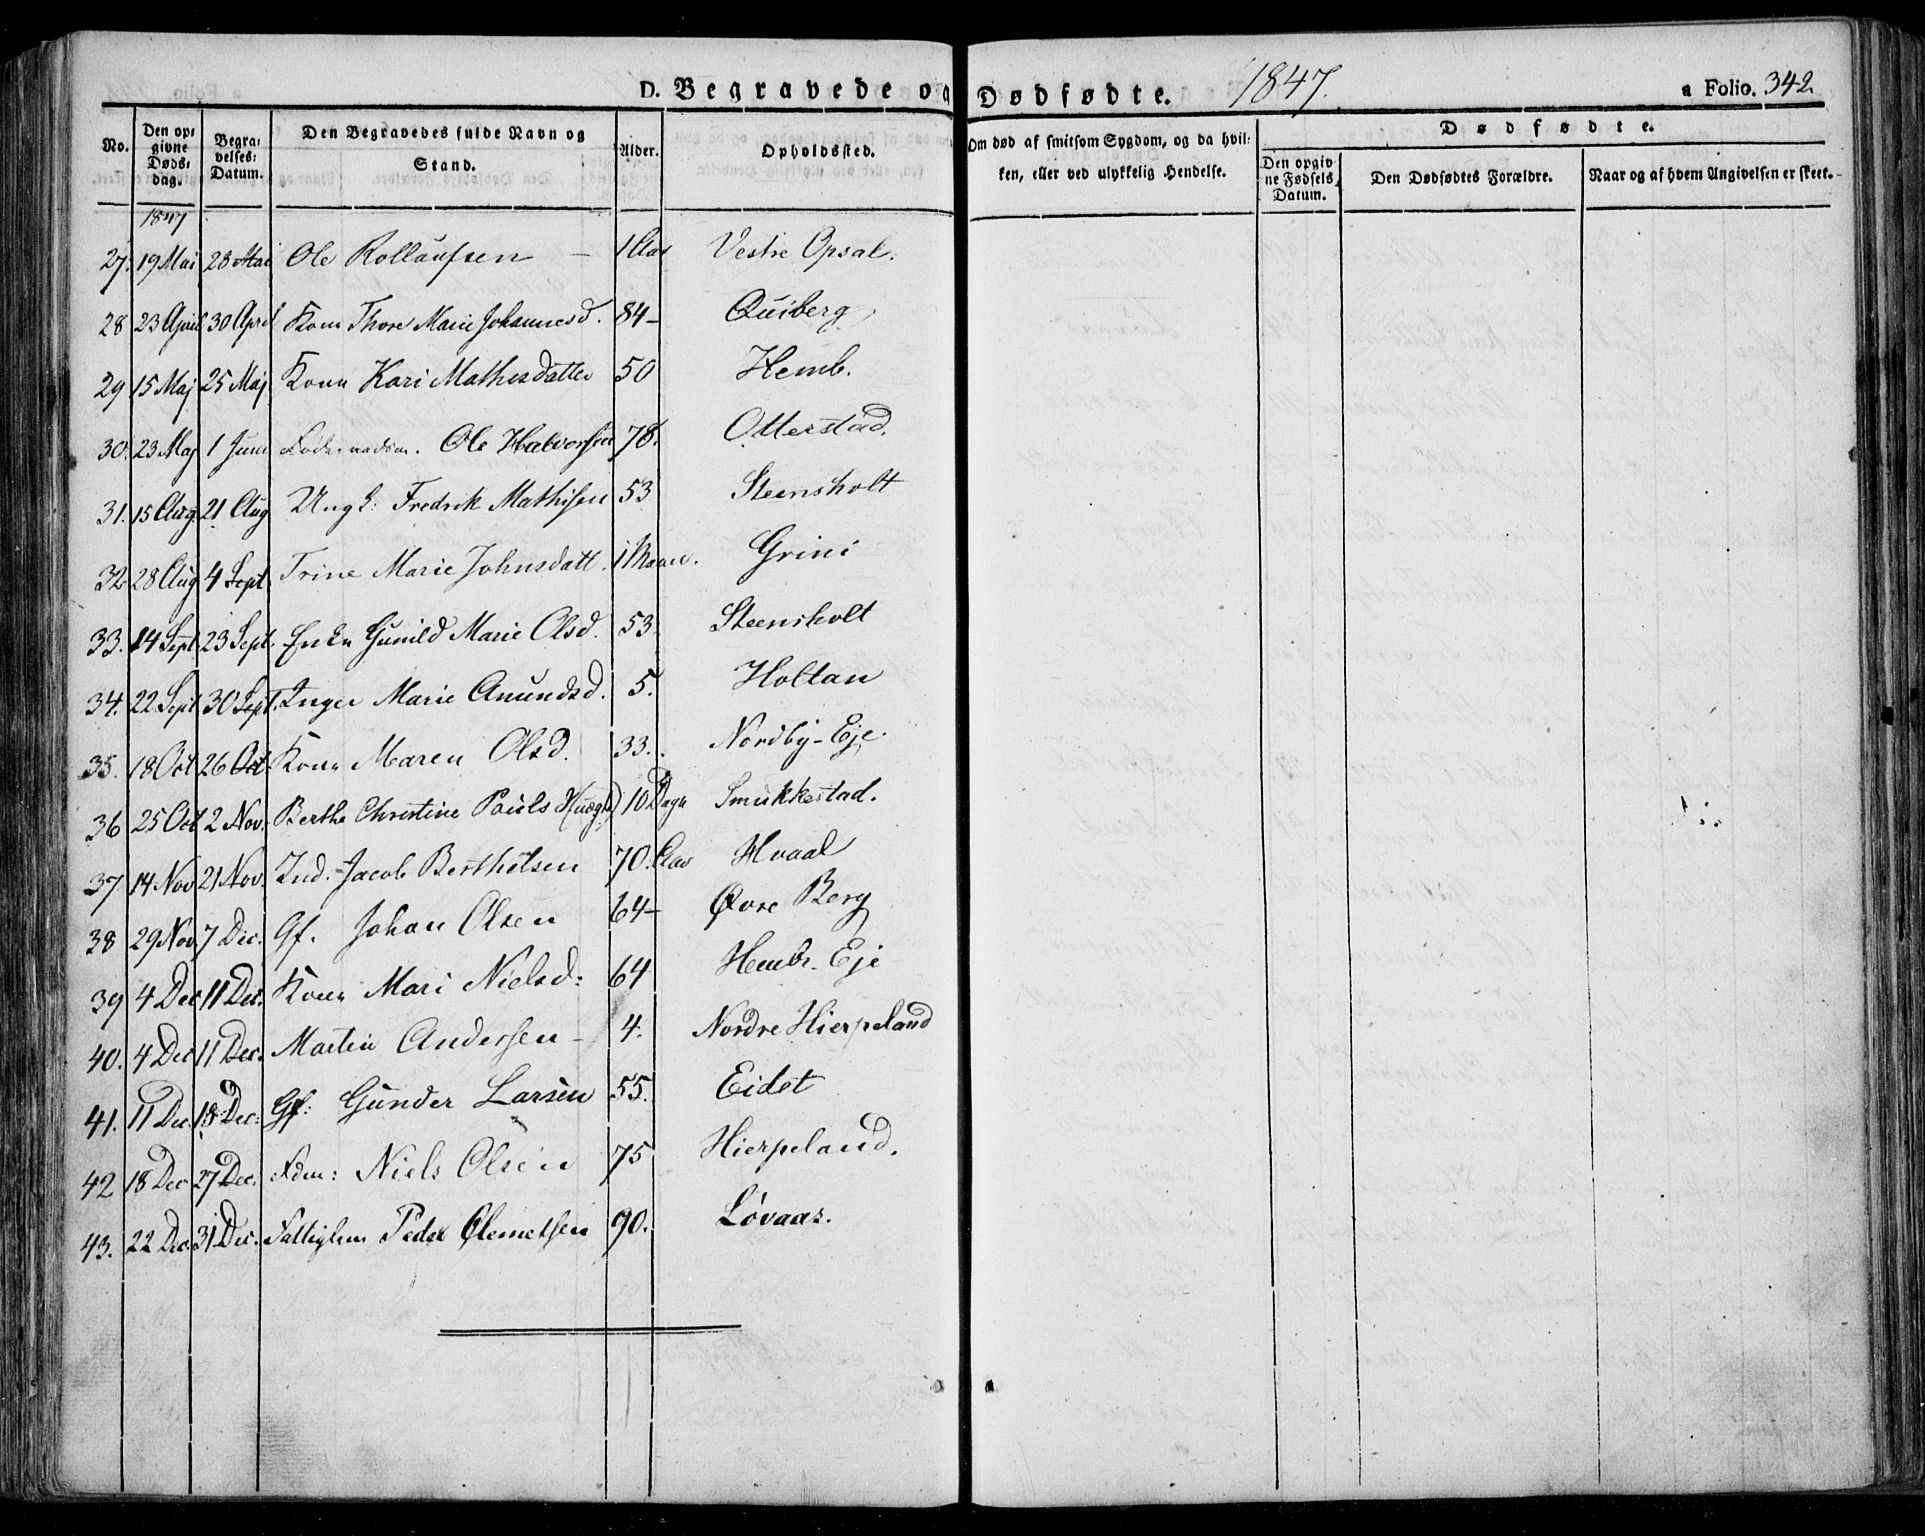 D. Begravede og Dødfødte. 1847. a Folio. 342
No. Den opgivne Dødsdag. Begravelses: Datum. Den Begravedes fulde Navn og Stand. Alder. Opholdssted. Om død af smitsom Sygdom, og da hvilken, eller ved ulykkelig Hendelse. Dødfødte. Den opgivne Fødsels Datum. Den Dødfødtes Forældre. Naar og af hvem Angivelsen er skeet.
1847
27. 19 Mai 28 Mai Ole Rollaufsen – 1 Aar Vestre Opsal.
28 23 April 30 April Kone Thore Marie Johannesd. 84– Quiberg
29 15 Maj 25 Maj Kone Kari Mathisdatter 50 Hemb.
30. 23 Maj 1 Juni Ole Halvorsen 78. Otterstad.
31. 15 Aug 21 Aug Ungk: Fredrik Mathisen 53 Steensholt
32 28 Aug 4 Sept. Trine Marie Johnsdatt. 1 Maan. Grini
33. 14 Sept 23 Sept. Enke Gunild Marie Olsd. 53 Steensholt
34. 22 Sept 30 Sept. Inger Marie Amundsd. 5. Holtan
35. 18 Oct 26 Oct. Kone Maren Olsd. 33. Nordby-Eje.
36 25 Oct 2 Nov. Berthe Christine Pauls 10 Dage Smukkestad.
37 14 Nov 21 Nov. Ind. Jacob Berthelsen 70. Aar Hvaal
38 29 Nov. 7 Dec. Gf. Johan Olsen 64– Øvre Berg
39 4 Dec 11 Dec. Kone Mari Nielsd: 64 Hemb. Eje
40. 4 Dec 11 Dec. Martin Andersen – 4. Nordre Hierpeland
41. 11 Dec 18 Dec: Gf: Gunder Larsen 55. Eidet
42 18 Dec 27 Dec. Fdm: Niels Olsen 75 Hierpeland.
43. 22 Dec. 31 Dec. Fattiglem Peder Clemetsen 90. Løvaas.